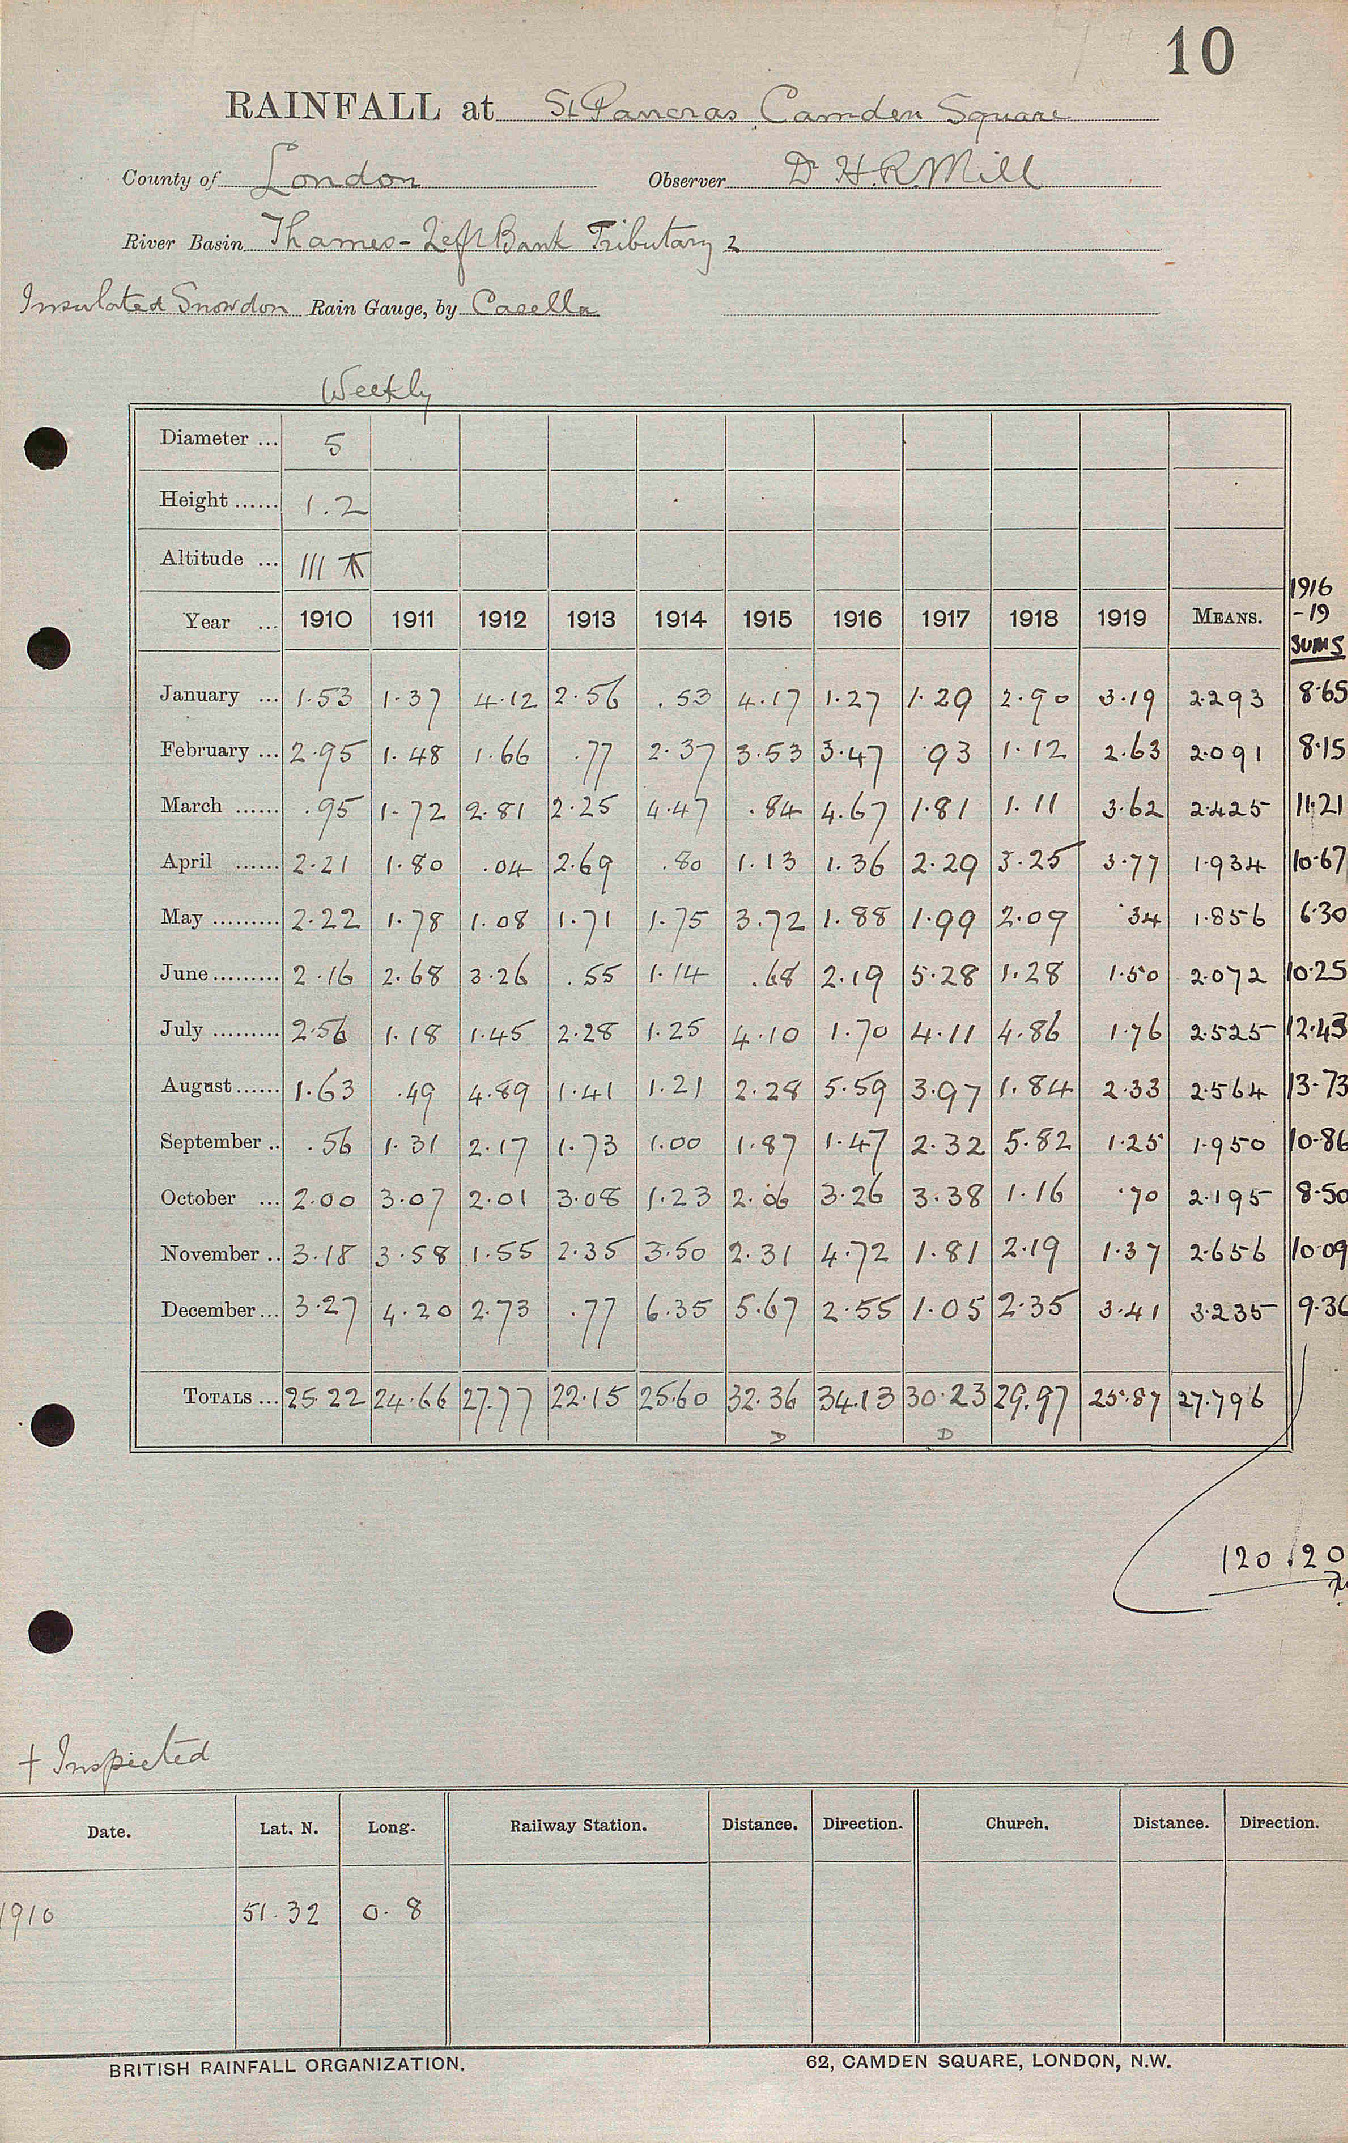 10
RAINFALL at St Pancras Camden Square
County of London Observer Dr H.R. Mill
River Basin Thames - Left Bank Tributary 2
Insulated Snowdon Rain Gauge, by Casella
Weekly
Diameter ... 5
Height ...... 1.2
Altitude ... 111
1916
-19
SUMS
Year ... 1910 1911 1912 1913 1914 1915 1916 1917 1918 1919 MEANS.
January ... 1.53 1.37 4.12 2.56 .53 4.17 1.27 1.29 2.90 3.19 2.293 8.65
February ... 2.95 1.48 1.66 .77 2.37 3.53 3.47 .93 1.12 2.63 2.091 8.15
March ...... .95 1.72 2.81 2.25 4.47 .84 4.67 1.81 1.11 3.62 2.425 11.21
April ...... 2.21 1.80 .04 2.69 .80 1.13 1.36 2.29 3.25 3.77 1.934 10.67
May ......... 2.22 1.78 1.08 1.71 1.75 3.72 1.88 1.99 2.09 .34 1.856 6.30
June ......... 2.16 2.68 3.26 .55 1.14 .68 2.19 5.28 1.28 1.50 2.072 10.25
July ......... 2.56 1.18 1.45 2.28 1.25 4.10 1.70 4.11 4.86 1.76 2.525 12.43
August ...... 1.63 .49 4.89 1.41 1.21 2.28 5.59 3.97 1.84 2.33 2.564 13.73
September .. .56 1.31 2.17 1.73 1.00 1.87 1.47 2.32 5.82 1.25 1.950 10.86
October ... 2.00 3.07 2.01 3.08 1.23 2.06 3.26 3.38 1.16 .70 2.195 8.50
November .. 3.18 3.58 1.55 2.35 3.50 2.31 4.72 1.81 2.19 1.37 2.656 10.09
December ... 3.27 4.20 2.73 .77 6.35 5.67 2.55 1.05 2.35 3.41 3.235 9.36
TOTALS ... 25.22 24.66 27.77 22.15 25.60 32.36 34.13 30.23 29.97 25.87 27.796
D D
120.20
† Inspected
Date. Lat. N. Long. Railway Station. Distance. Direction. Church. Distance. Direction.
1910 51.32 0.8
BRITISH RAINFALL ORGANIZATION. 62, CAMDEN SQUARE, LONDON, N.W.